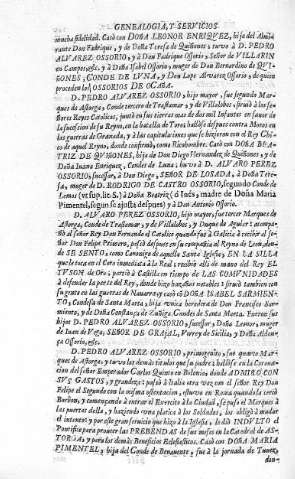 GENEALOGIA, Y SERVICIOS
mucha fidelidad. Casó con DOÑA LEONOR ENRIQUEZ, hija del Almi-
rante Don Fadrique, y de Doña Teresa de Quiñones; tuvo à D. PEDRO
ALVAREZ OSSORIO, y à Don Fadrique Ossorio, Señor de VILLARIN
de Campariego, y à Doña Isabel Ossorio, muger de Don Bernardino de QUI-
ñONES, CONDE DE LVNA, y Don Lope Alvarez Ossorio, de quien
proceden los OSSORIOS DE OCAñA.
D. PEDRO ALVAREZ OSSORIO, hijo mayor, fue segundo Marques
de Astorga, Conde tercero de Trastamar, y de Villalobos; sirviò à los se-
ñores Reyes Catolicos, junto con sus tierras
la succession de su Reyna, en la batalla de Toro;
las guerras de Granada, y à las capitulaciones que se hizieron con el Rey Chi-
co de aquel Reyno, donde confirmò, como Ricohombre. Casò con DOñA BEA-
TRIZ DE QUIñONES, hija de Don Diego Hernandez de Quiñones, y de
Doña Juana Enriquez, Condes de Luna; tuvo à D. ALVARO PEREZ
OSSORIO, successor, à Don Diego, SEñOR DE LOSADA, à Doña Tere-
sa, muger de D. RODRIGO DE CASTRO OSSORIO, segundo Conde de
Lemus à Doña Beatriz, ò Inès, madre de Doña Maria
Pimentel, segun se ajusta despues) y à Don Antonio Ossorio.
D. ALVARO PEREZ OSSORIO, hijo mayor, fue tercer Marques de
Astorga, Conde de Trastamar, y de Villalobos, y Duque de Aguiar; acompa-
ñò al señor Rey Don Fernando el Catolico quando fue à Galicia à recibir al se-
ñor Don Felipe Primero, passò despues en su compañia al Reyno de Leon, don-
DE SE SENTO, como Canonigo de aquella Santa Iglesia, EN LA SILLA
que le toca en el Coro inmediata à la Real: recibiò alli de mano del Rey EL
TVSON de Oro, pereciò à Castilla en tiempo de LAS COMVNIDADES
à defender la parte del Rey, donde hizo hazañas notables: sirviò tambien con
su gente en las guerras de Navarra; casò cò DOñA ISABEL SARMIEN-
TO, Condesa de Santa Marta, hija vnica heredera de Don Francisco Sar-
miento, y de Doña Constança de Zuñiga, Condes de Santa Marta. Fueron sus
hijos D. PEDRO ALVAREZ OSSORIO, successor, Doña Leonor, muger
de Juan de Vega, SEñOR DE GRAJAL, Virrey de Sicilia, y Doña Aldon-
ça Ossorio.
D. PEDRO ALVAREZ OSSORIO, primogenito, fue quarto Mar-
ques de Astorga, y tuvo los demàs titulos que su padre: hallòse en la Corona-
cion del señor Emperador Carlos Quinto en Bolonia, donde ADMIRO CON
SVS GASTOS, y grandeza; passò à Italia otra vez con el señor Rey Don
Felipe el Segundo con la misma ostentacion, estuvo en Roma quando la cercò
Borbon, y començando à entrar el Exercito à la Ciudad, se puso el Marquès à
los puertas della, y haziendo vna platica à los Soldados, los obligò à mudar
el intento; y por este gran servicio que hizo à la Iglesia, le diò INDVLTO el
Pontifice para proveer las PREBENDAS de sus meses en la Catedral de AS-
TORGA, y para los demàs Beneficios Eclesiasticos. Casò con DOñA MARIA
PIMENTEL, hija del Conde de Benavente, fue à la jornada de Tunez,